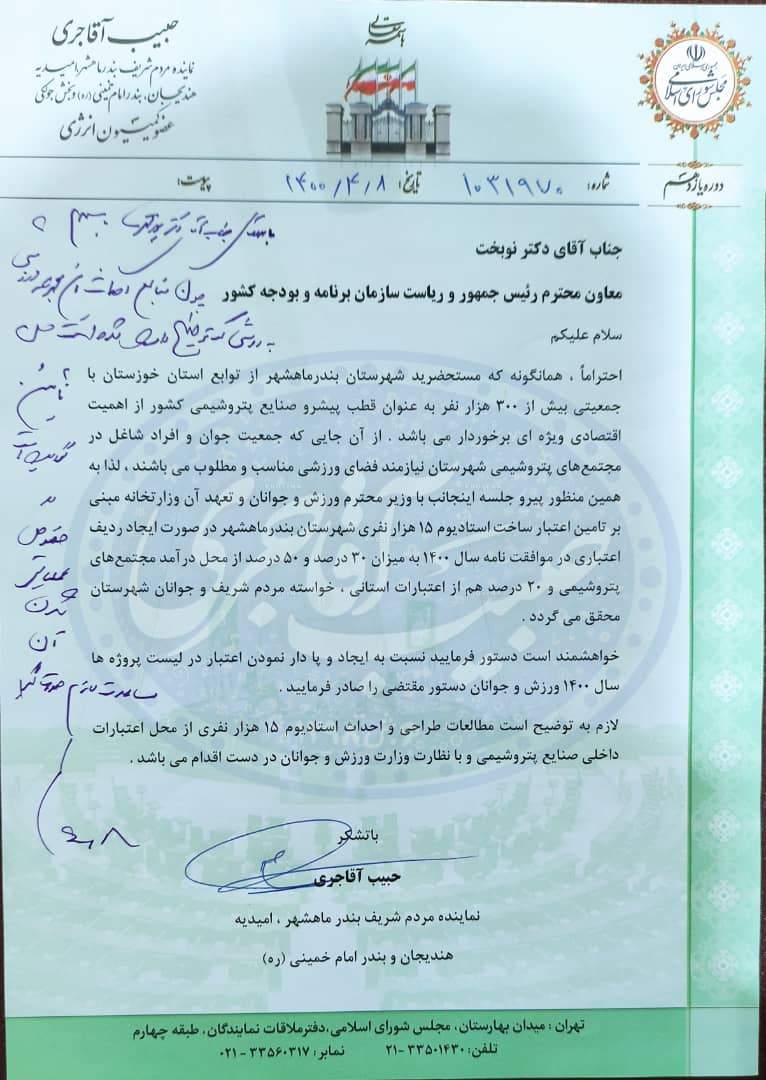 باسمه تعالی
جمهوری اسلامی ایران
مجلس شورای اسلامی
دوره یازدهم
حبیب آقاجری
نماینده مردم شریف بندر ماهشهر امیدیه
هندیجان، بندر امام خمینی (ره) و بخش جولکی
عضو کمیسیون انرژی
شماره: ۱۰۳۱۹۷۰
تاریخ: ۱۴۰۰/۴/۸
پیوست:
جناب آقای دکتر نوبخت
معاون محترم رئیس جمهور و ریاست سازمان برنامه و بودجه کشور
سلام علیکم
احتراماً ، همانگونه که مستحضرید شهرستان بندرماهشهر از توابع استان خوزستان با
جمعیتی بیش از ۳۰۰ هزار نفر به عنوان قطب پیشرو صنایع پتروشیمی کشور از اهمیت
اقتصادی ویژه ای برخوردار می باشد . از آن جایی که جمعیت جوان و افراد شاغل در
مجتمع‌های پتروشیمی شهرستان نیازمند فضای ورزشی مناسب و مطلوب می باشند ، لذا به
همین منظور پیرو جلسه اینجانب با وزیر محترم ورزش و جوانان و تعهد آن وزارتخانه مبنی
بر تامین اعتبار ساخت استادیوم ۱۵ هزار نفری شهرستان بندرماهشهر در صورت ایجاد ردیف
اعتباری در موافقت نامه سال ۱۴۰۰ به میزان ۳۰ درصد و ۵۰ درصد از محل درآمد مجتمع‌های
پتروشیمی و ۲۰ درصد هم از اعتبارات استانی ، خواسته مردم شریف و جوانان شهرستان
محقق می گردد .
خواهشمند است دستور فرمایید نسبت به ایجاد و پا دار نمودن اعتبار در لیست پروژه ها
سال ۱۴۰۰ ورزش و جوانان دستور مقتضی را صادر فرمایید .
لازم به توضیح است مطالعات طراحی و احداث استادیوم ۱۵ هزار نفری از محل اعتبارات
داخلی صنایع پتروشیمی و با نظارت وزارت ورزش و جوانان در دست اقدام می باشد .
باتشکر
حبیب آقاجری
نماینده مردم شریف بندر ماهشهر ، امیدیه
هندیجان و بندر امام خمینی (ره)
چون منابع
به روشنی
شده است
تأمین
در
خصوص
عملیاتی
شدن
آن
مساعدت لازم صورت گیرد
تهران : میدان بهارستان، مجلس شورای اسلامی،دفترملاقات نمایندگان، طبقه چهارم
تلفن: ۳۳۵۰۱۴۳۰ -۰۲۱ نمابر : ۳۳۵۶۰۳۱۷ - ۰۲۱